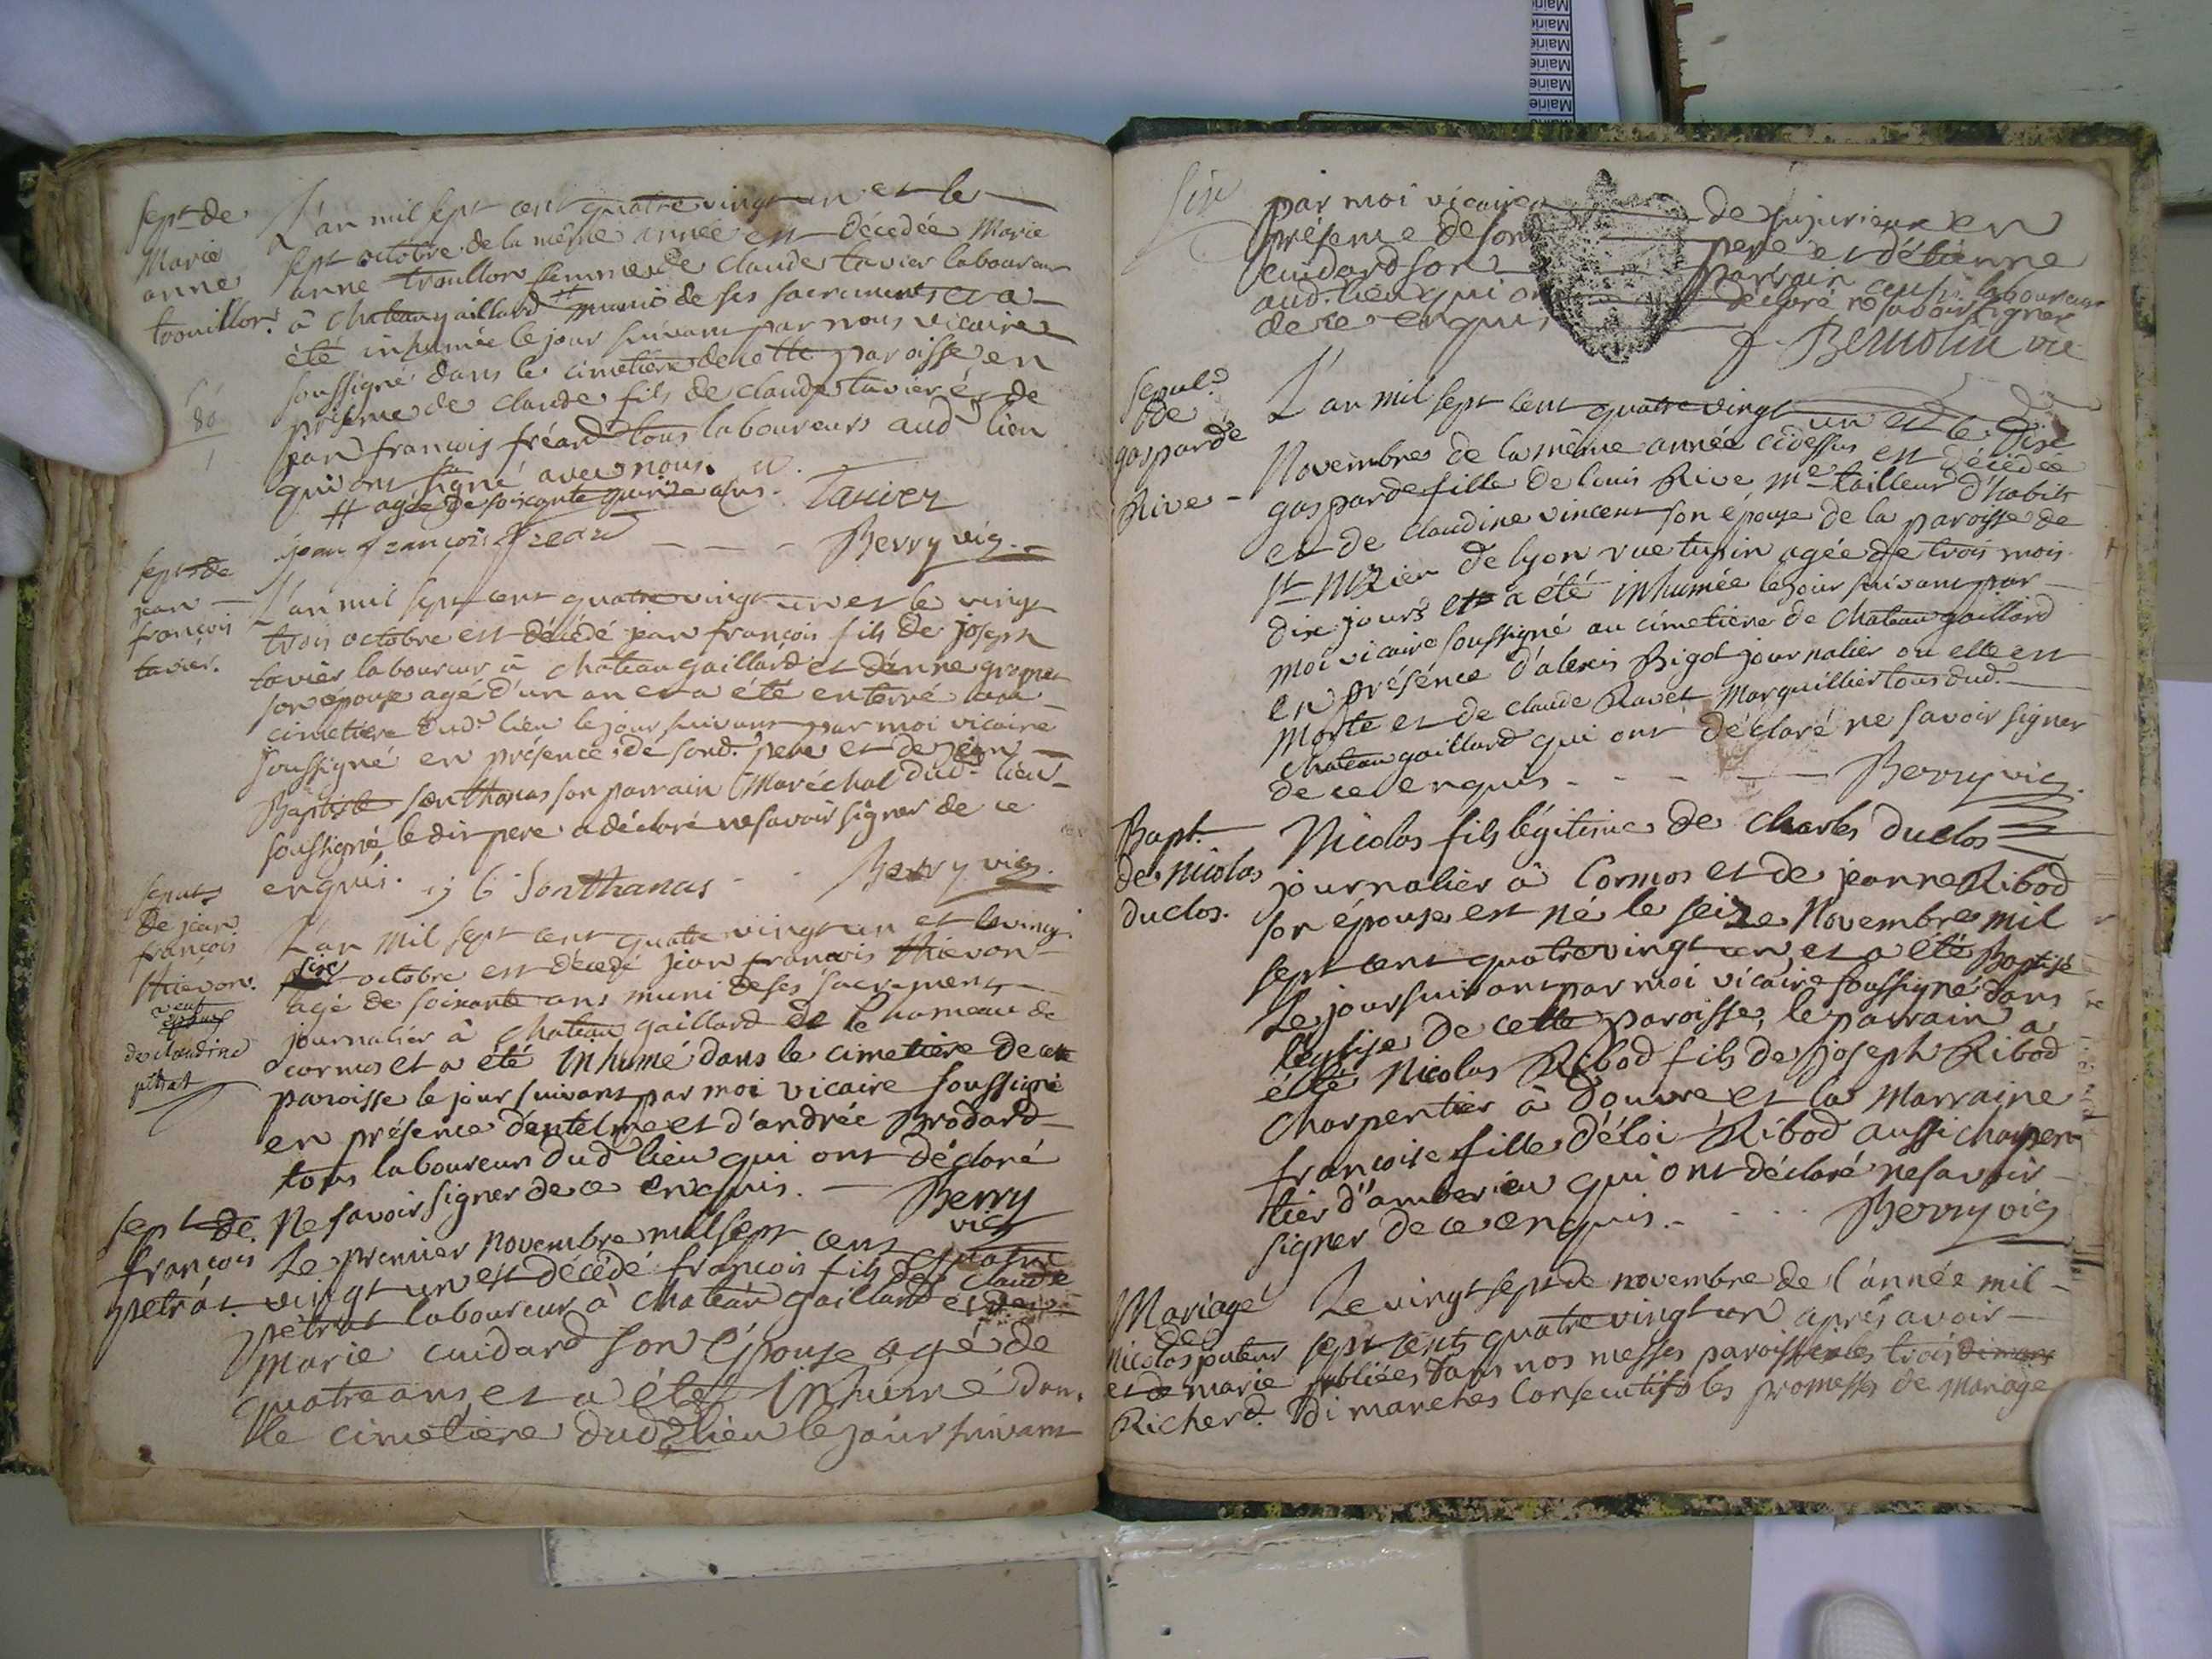 Mairie
Mairie
Mairie
Mairie
Mairie
Mairie
sept. de
Marie
anne
trouillon.
L'an mil sept cent quatre vingt un et le
sept octobre de la même année est décedée Marie
anne trouillon femme de Claude tavier laboureur
à Chateaugaillard # munie de ses sacrements et a
été inhumée le jour suivant par nous vicaire
soussigné dans le cimetiere de cette paroisse en
présence de claude fils de claude tavier et de
jean francois fréard tous laboureurs aud. lieu
qui ont signé avec nous.
# agée de soixante quinze ans. Tavier
jean francois freard - - - Berry vic.
80
sept. de
jean
françois
tavier.
L'an mil sept cent quatre vingt un et le vingt
trois octobre est décédé jean françois fils de joseph
tavier laboureur à chateaugaillard et d'anne
son épouse agé d'un an et a été enterré au
cimetiere dud. lieu le jour suivant par moi vicaire
soussigné en présence de sond. pere et de jean
Baptiste Sonthonas son parrain Maréchal dud. lieu
soussigné, le dit pere a déclaré ne savoir signer de ce
enquis. j b Sonthanas - - Berry vic.
de jean
françois
thievon.
veuf
de claudine
pétrat
L'an mil sept cent quatre vingt un et le vingt
six octobre est décédé jean françois thievon
agé de soixante ans muni de ses sacrements
journalier à Chateau gaillard de le hameau de
cormos et a été inhumé dans le cimetière de cette
paroisse le jour suivant par moi vicaire soussigné
en présence d'antelme et d'andrée Brodard
tous laboureur dud. lieu qui ont déclaré
Ne savoir signer de ce enquis. - Berry
vic
sept. de
françois
petrat.
Le premier novembre mil sept cent quatre
vingt un est décédé françois fils de Claude
pétrat laboureur à Chateau gaillard et de
Marie cuidard son épouse agé de
quatre ans et a été inhumé dans
le cimetiere dud. lieu le jour suivant
six
par moi vicaire de jujurieux en
présence de son pere et d'étienne
cuidard son parrain aussi laboureur
aud. lieu qui ont déclaré ne savoir signer
de ce enquis
Bernolin vic
sepul.
de
gasparde
Rive -
L'an mil sept cent quatre vingt un et le dix
Novembre de la même année cidessus est décédée
gasparde fille de louis Rive, Me tailleur d'habits
et de claudine vincent son épouse de la paroisse de
st Nizier de lyon rue tupin agée de trois mois
dix jours et a été inhumée le jour suivant par
moi vicaire soussigné au cimetière de Chateau gaillard
en présence d'alexis Bigot journalier ou elle est
Morte et de claude Ravet Marguillier tous dud.
Chateau gaillard qui ont déclaré ne savoir signer
de ce enquis - - - - Berry vic.
Bapt.
de Nicolas
duclos.
Nicolas fils légitime de Charles duclos
journalier à Cormos et de jeanne Ribod
son épouse est né le seize Novembre mil
sept cent quatre vingt un et a été Baptisé
Le jour suivant par moi vicaire soussigné dans
l'eglise de cette paroisse, le parrain a
été Nicolas Ribod fils de joseph Ribod
Charpentier à douvre et la Marraine
francoise fille d'éloi Ribod aussi charpen-
tier d'amberieu qui ont déclaré ne savoir
signer de ce enquis. - - - Berry vic
Mariage
de
nicolas
et de marie
Richerd.
Le vingt sept de novembre de l'année mil
sept cents quatre vingt un après avoir
publiées dans nos messes paroissiales trois
dimanches Consecutifs les promesses de mariage